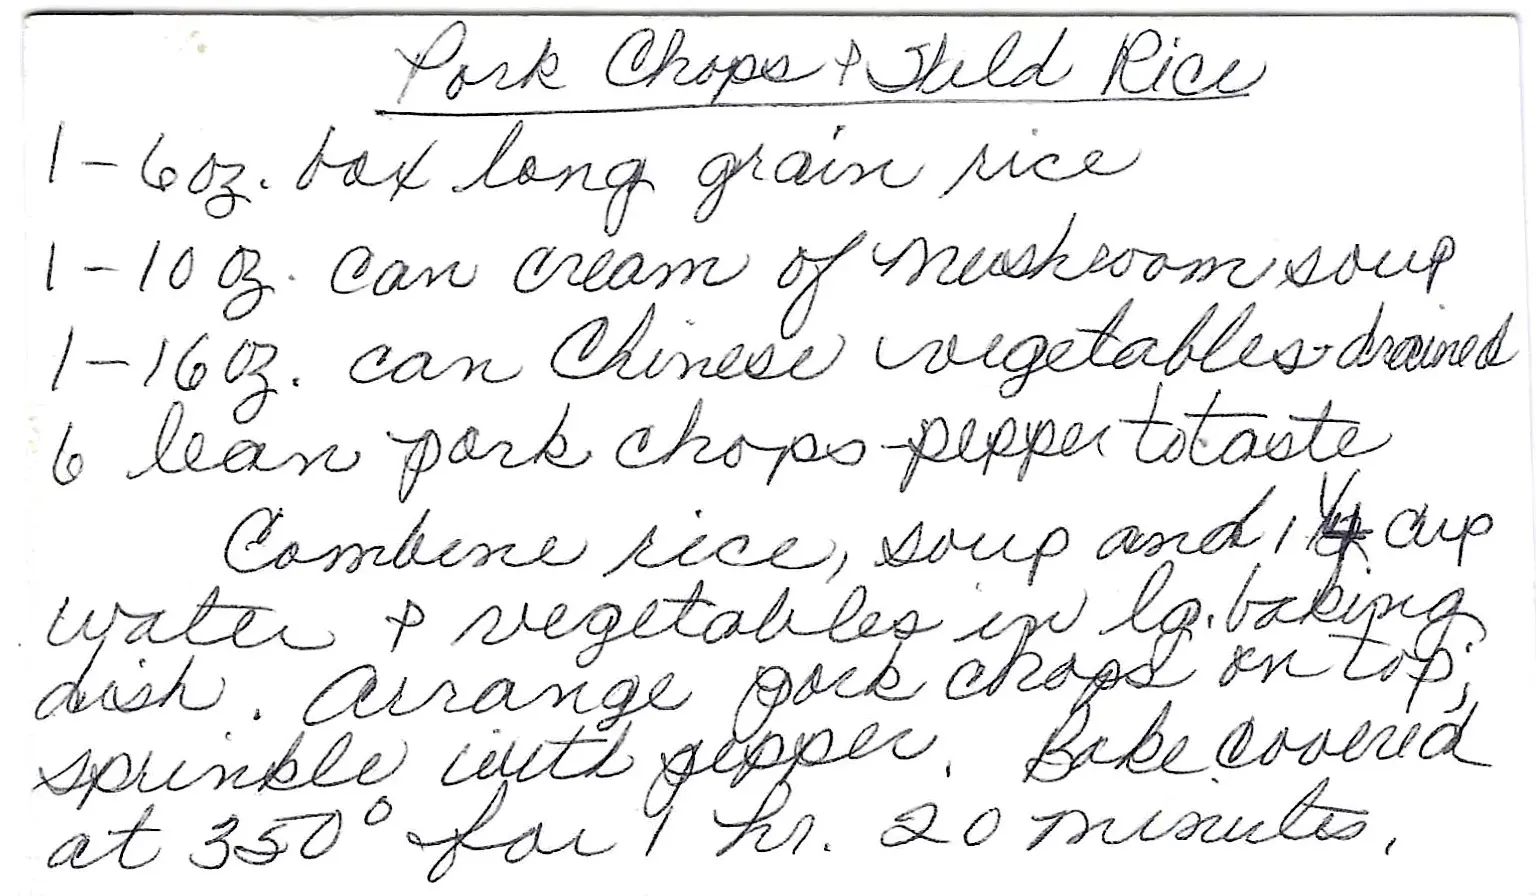 Pork Chops & Wild Rice
1 - 6 oz. box long grain rice
1 - 10 oz. can cream of mushroom soup
1 - 16 oz. can Chinese vegetables - drained
6 lean pork chops - pepper to taste
Combine rice, soup and 1 1/4 cup
water & vegetables in lg. baking
dish. Arrange pork chops on top;
sprinkle with pepper. Bake covered
at 350° for 1 hr. 20 minutes.